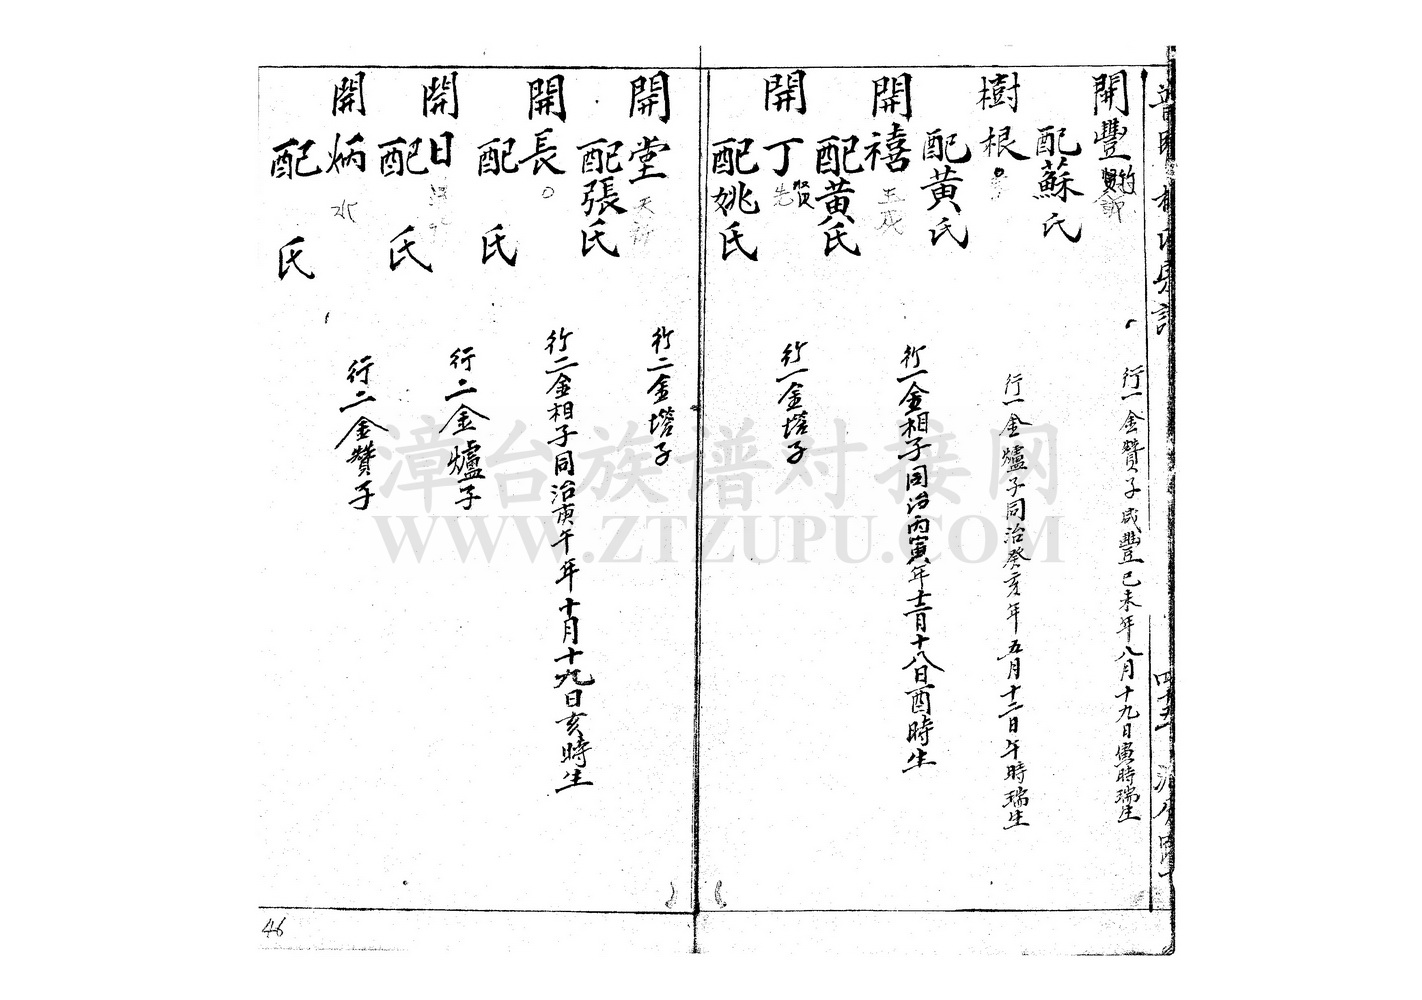 開豐
配蘇氏
行一金贊子咸豐己未年八月十九日寅時瑞生
樹根
配黄氏
行一金爐子同治癸亥年五月十二日午時瑞生
開禧
配黄氏
行一金相子同治丙寅年十二月十八日酉時生
開丁
配姚氏
行一金塔子
開堂
配張氏
行二金塔子
開長
配 氏
行二金相子同治庚午年十月十九日亥時生
開日
配 氏
行二金爐子
開炳
配 氏
行二金贊子
46
漳台族谱对接网
WWW.ZTZUPU.COM